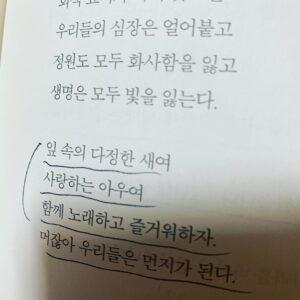 우리들의 심장은 얼어붙고
정원도 모두 화사함을 잃고
생명은 모두 빛을 잃는다.
잎 속의 다정한 새여
사랑하는 아우여
함께 노래하고 즐거워하자.
머잖아 우리들은 먼지가 된다.